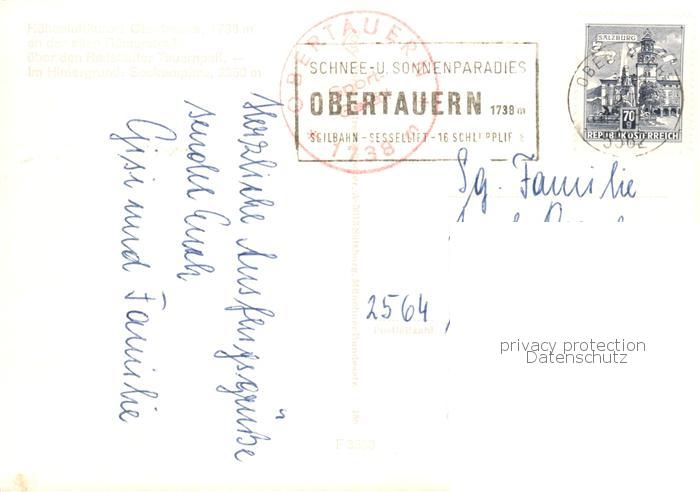 Höhenluftkurort Obertauern, 1738 m
an der alten Römerstraße
über den Radstädter Tauernpaß. —
Im Hintergrund:
OBERTAUERN
Sport-
1738
SCHNEE-U. SONNENPARADIES
OBERTAUERN 1738 m
SEILBAHN - SESSELLIFT - 16 SCHLEPPLIFTE
SALZBURG
70
REPUBLIK ÖSTERREICH
5562
Herzliche Ausflugsgrüße
sendet Euch
Gisi und Familie
Sg. Familie
2564
Postleitzahl
privacy protection
Datenschutz